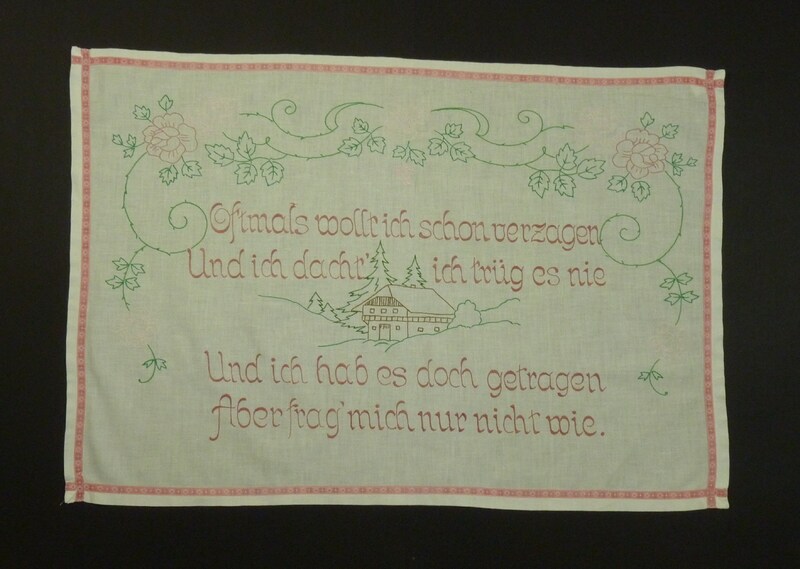 Oftmals wollt ich schon verzagen
Und ich dacht' ich trüg es nie
Und ich hab es doch getragen
Aber frag' mich nur nicht wie.